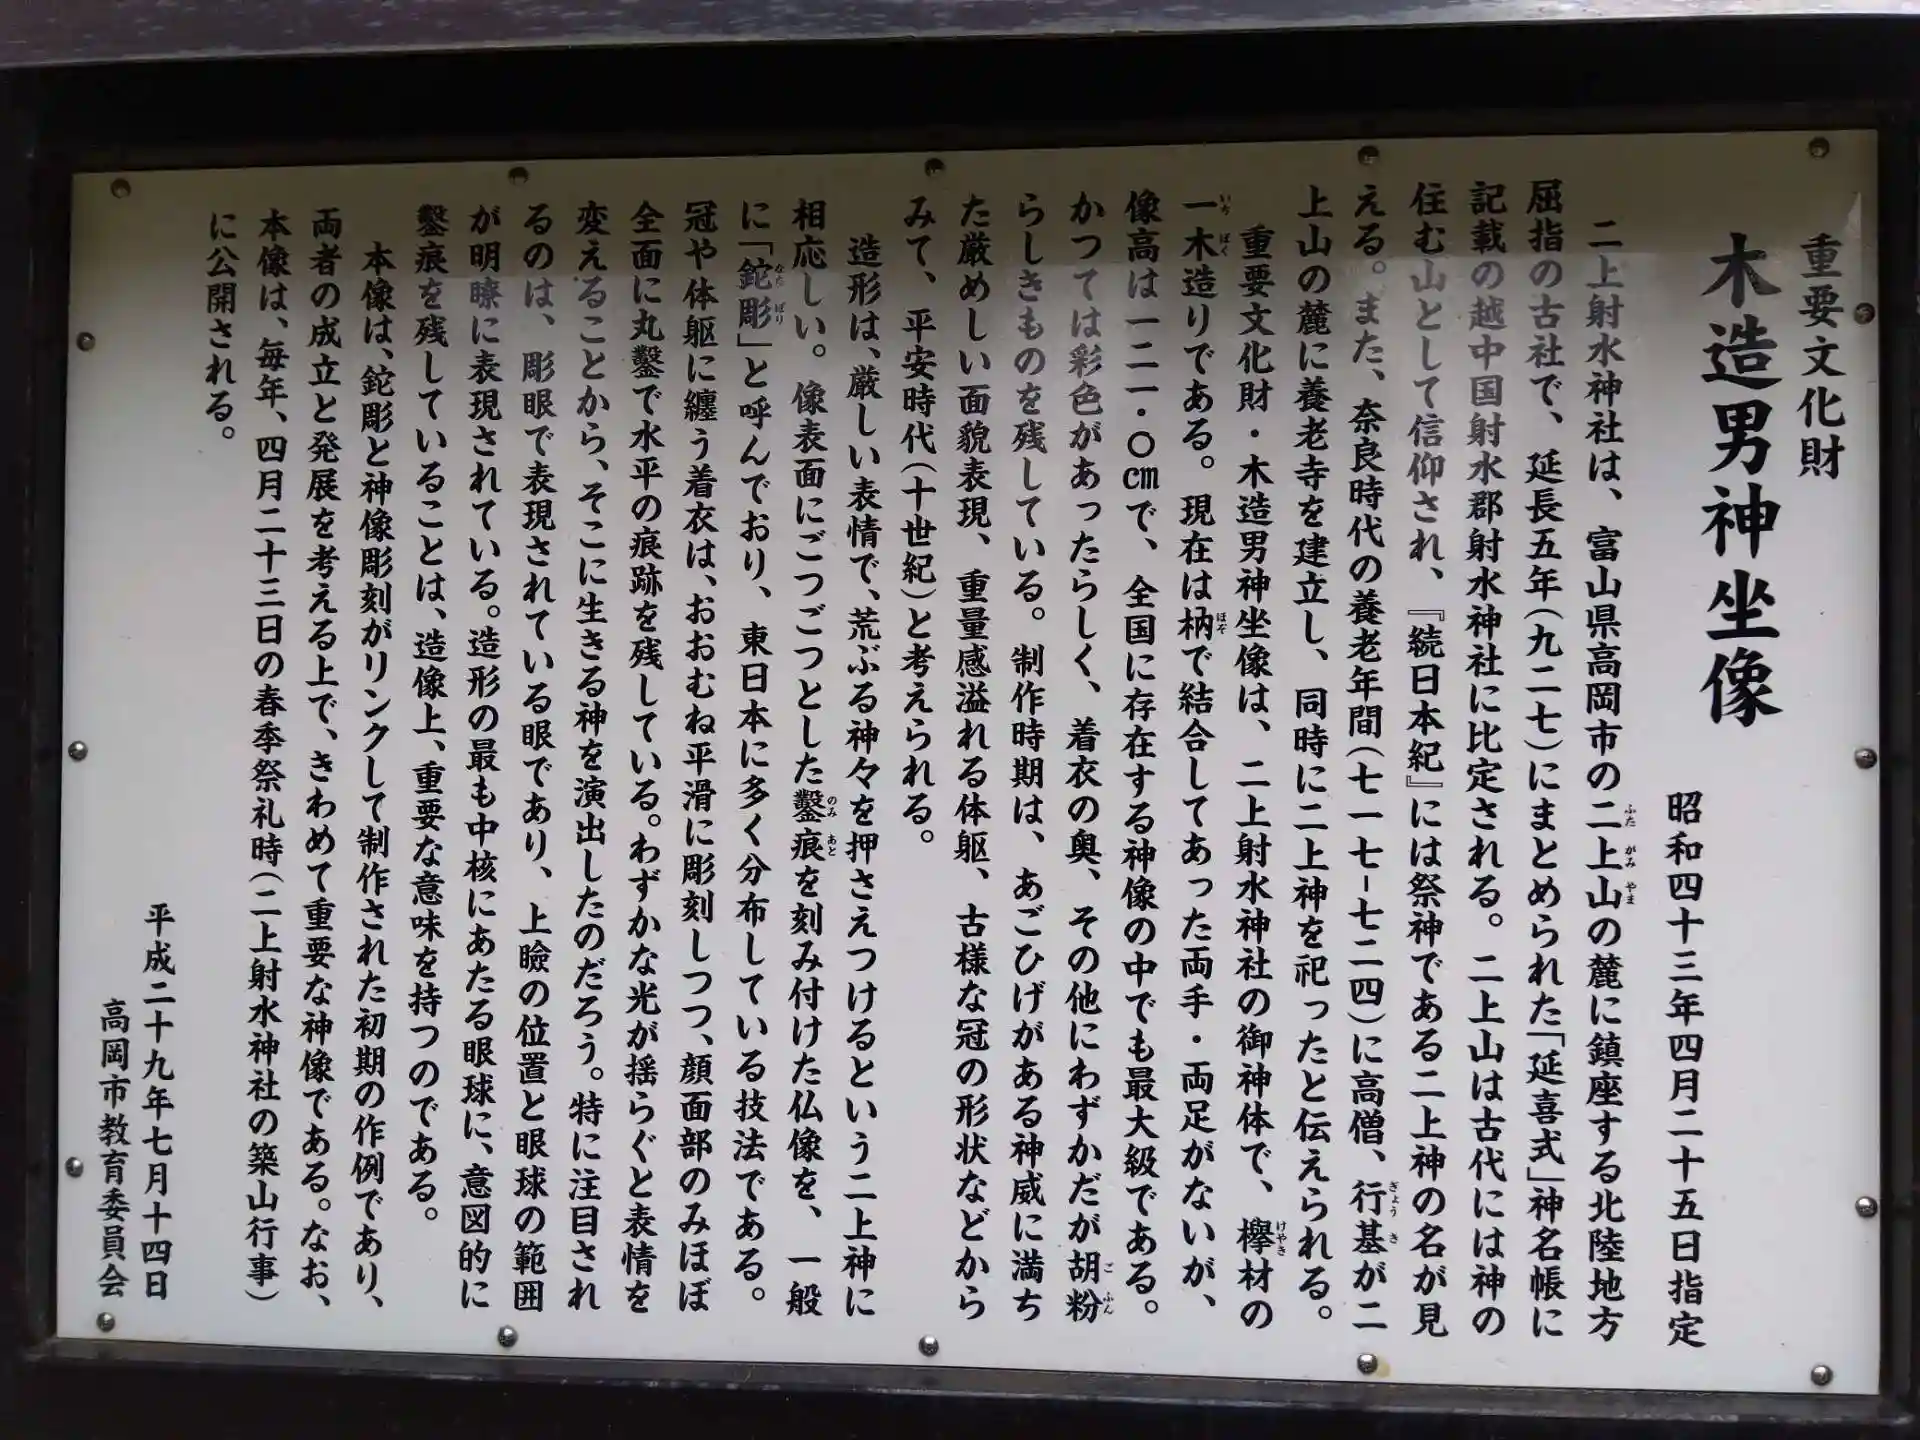 重要文化財
木造男神坐像
昭和四十三年四月二十五日指定
二上射水神社は、富山県高岡市の二上山の麓に鎮座する北陸地方
屈指の古社で、延長五年(九二七)にまとめられた「延喜式」神名帳に
記載の越中国射水郡射水神社に比定される。二上山は古代には神の
住む山として信仰され、『続日本紀』には祭神である二上神の名が見
える。また、奈良時代の養老年間(七一七-七二四)に高僧、行基が二
上山の麓に養老寺を建立し、同時に二上神を祀ったと伝えられる。
重要文化財・木造男神坐像は、二上射水神社の御神体で、欅材の
一木造りである。現在は枘で結合してあった両手・両足がないが、
像高は一二一・〇㎝で、全国に存在する神像の中でも最大級である。
かつては彩色があったらしく、着衣の奥、その他にわずかだが胡粉
らしきものを残している。制作時期は、あごひげがある神威に満ち
た厳めしい面貌表現、重量感溢れる体躯、古様な冠の形状などから
みて、平安時代(十世紀)と考えられる。
造形は、厳しい表情で、荒ぶる神々を押さえつけるという二上神に
相応しい。像表面にごつごつとした鑿痕を刻み付けた仏像を、一般
に「鉈彫」と呼んでおり、東日本に多く分布している技法である。
冠や体躯に纏う着衣は、おおむね平滑に彫刻しつつ、顔面部のみほぼ
全面に丸鑿で水平の痕跡を残している。わずかな光が揺らぐと表情を
変えることから、そこに生きる神を演出したのだろう。特に注目され
るのは、彫眼で表現されている眼であり、上瞼の位置と眼球の範囲
が明瞭に表現されている。造形の最も中核にあたる眼球に、意図的に
鑿痕を残していることは、造像上、重要な意味を持つのである。
本像は、鉈彫と神像彫刻がリンクして制作された初期の作例であり、
両者の成立と発展を考える上で、きわめて重要な神像である。なお、
本像は、毎年、四月二十三日の春季祭礼時(二上射水神社の築山行事)
に公開される。
平成二十九年七月十四日
高岡市教育委員会